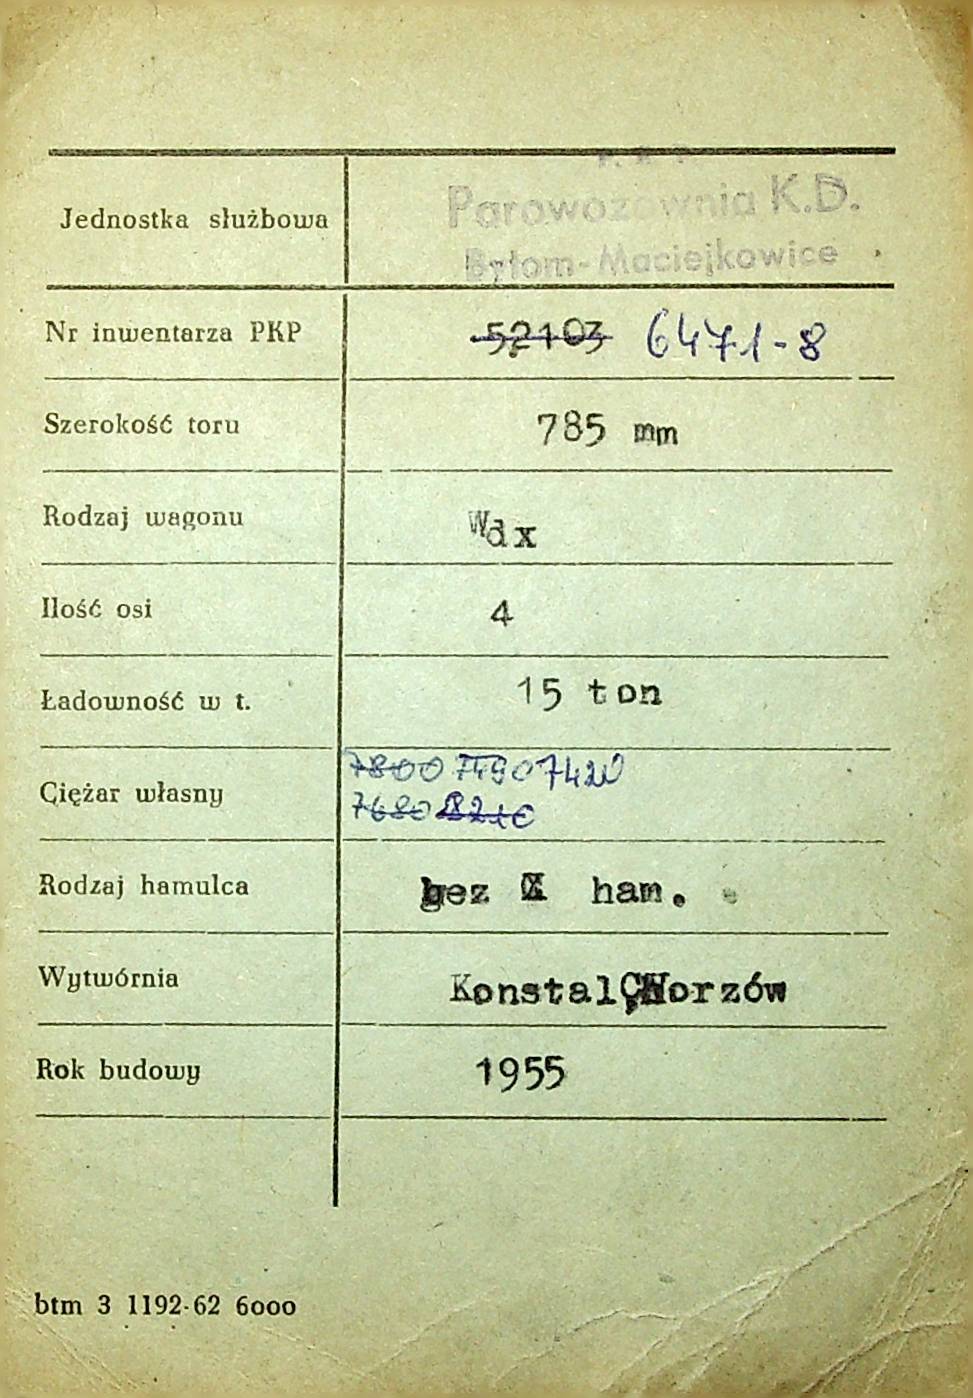 Jednostka służbowa
Parowozownia K.D.
Bytom-Maciejkowice
Nr inwentarza PKP 52103 6471-8
Szerokość toru 785 mm
Rodzaj wagonu Wdx
Ilość osi 4
Ładowność w t. 15 ton
Ciężar własny 7800 7490 7420
7680 8210
Rodzaj hamulca bez ham.
Wytwórnia Konstal Chorzów
Rok budowy 1955
btm 3 1192-62 6000